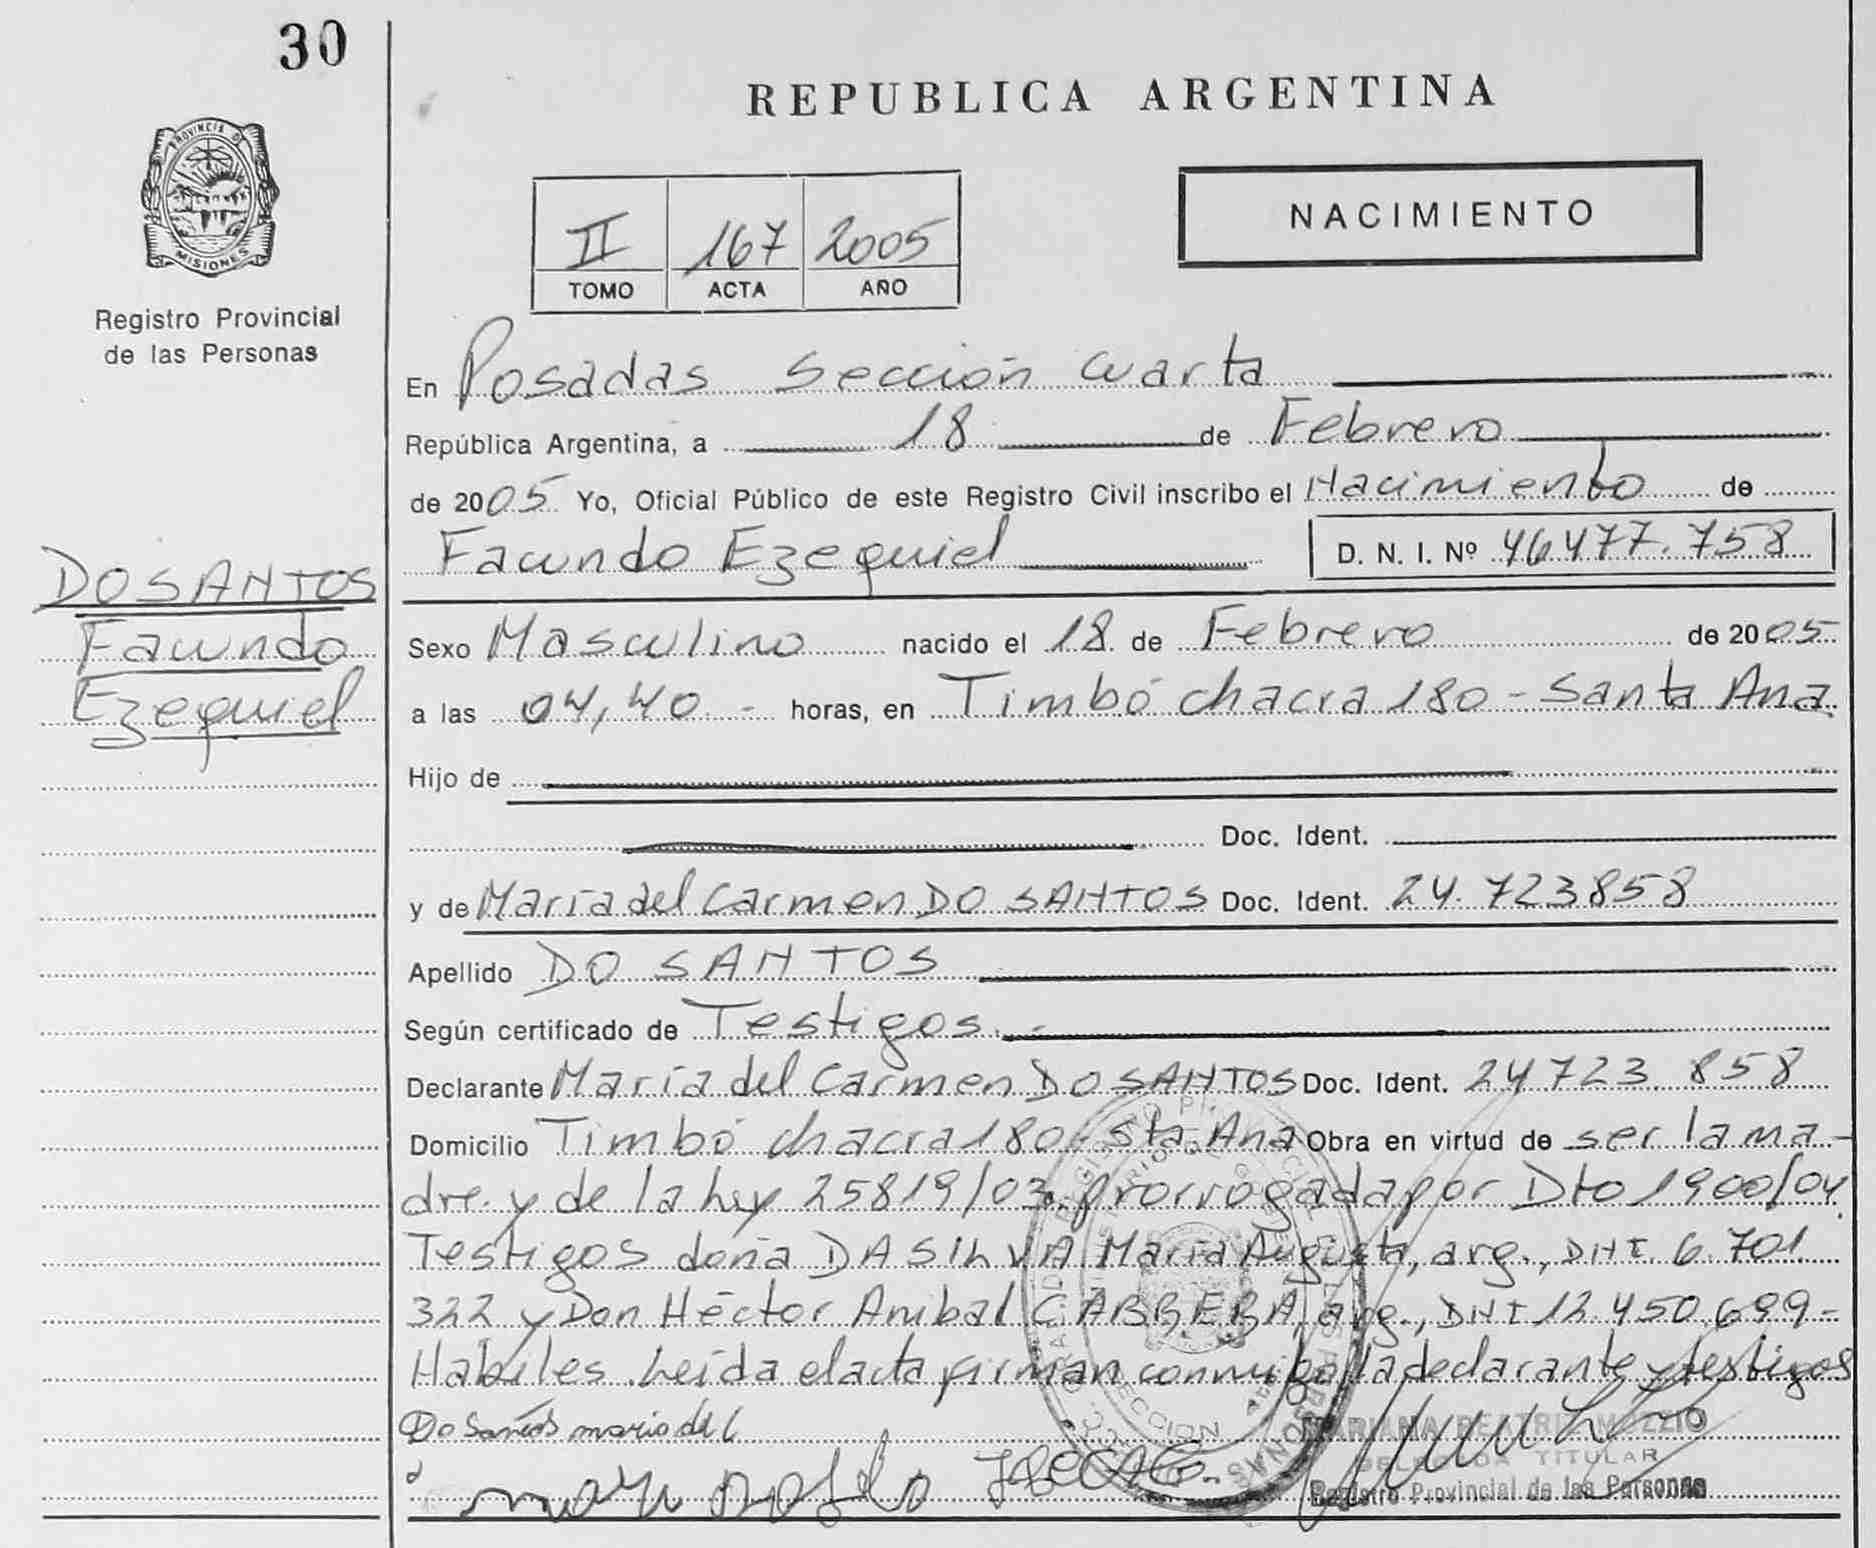 30
REPUBLICA ARGENTINA
PROVINCIA DE
MISIONES
Registro Provincial
de las Personas
II 167 2005
TOMO ACTA AÑO
NACIMIENTO
En Posadas Sección Cuarta
República Argentina, a 18 de Febrero
de 2005 Yo, Oficial Público de este Registro Civil inscribo el Nacimiento de
Facundo Ezequiel D. N. I. Nº 46477.758
DO SANTOS
Facundo
Ezequiel
Sexo Masculino nacido el 18 de Febrero de 2005
a las 04,40 - horas, en Timbó chacra 180 - Santa Ana
Hijo de
Doc. Ident.
y de María del Carmen DO SANTOS Doc. Ident. 24.723858
Apellido DO SANTOS
Según certificado de Testigos.-
Declarante María del Carmen DO SANTOS Doc. Ident. 24723.858
Domicilio Timbó chacra 180 - Sta. Ana Obra en virtud de ser la ma-
dre. y de la ley 25819/03. prorrogada por Dto 1900/04.
Testigos doña DA SILVA María Augusta, arg., DNI. 6.701.
322 y Don Héctor Anibal CABRERA, arg., DNI 12.450.699-
Habiles. Leída el acta firman conmigo la declarante y testigos
Do Santos maria del C
MARIANA BEATRIZ MUZZIO
DELEGADA TITULAR
Registro Provincial de las Personas